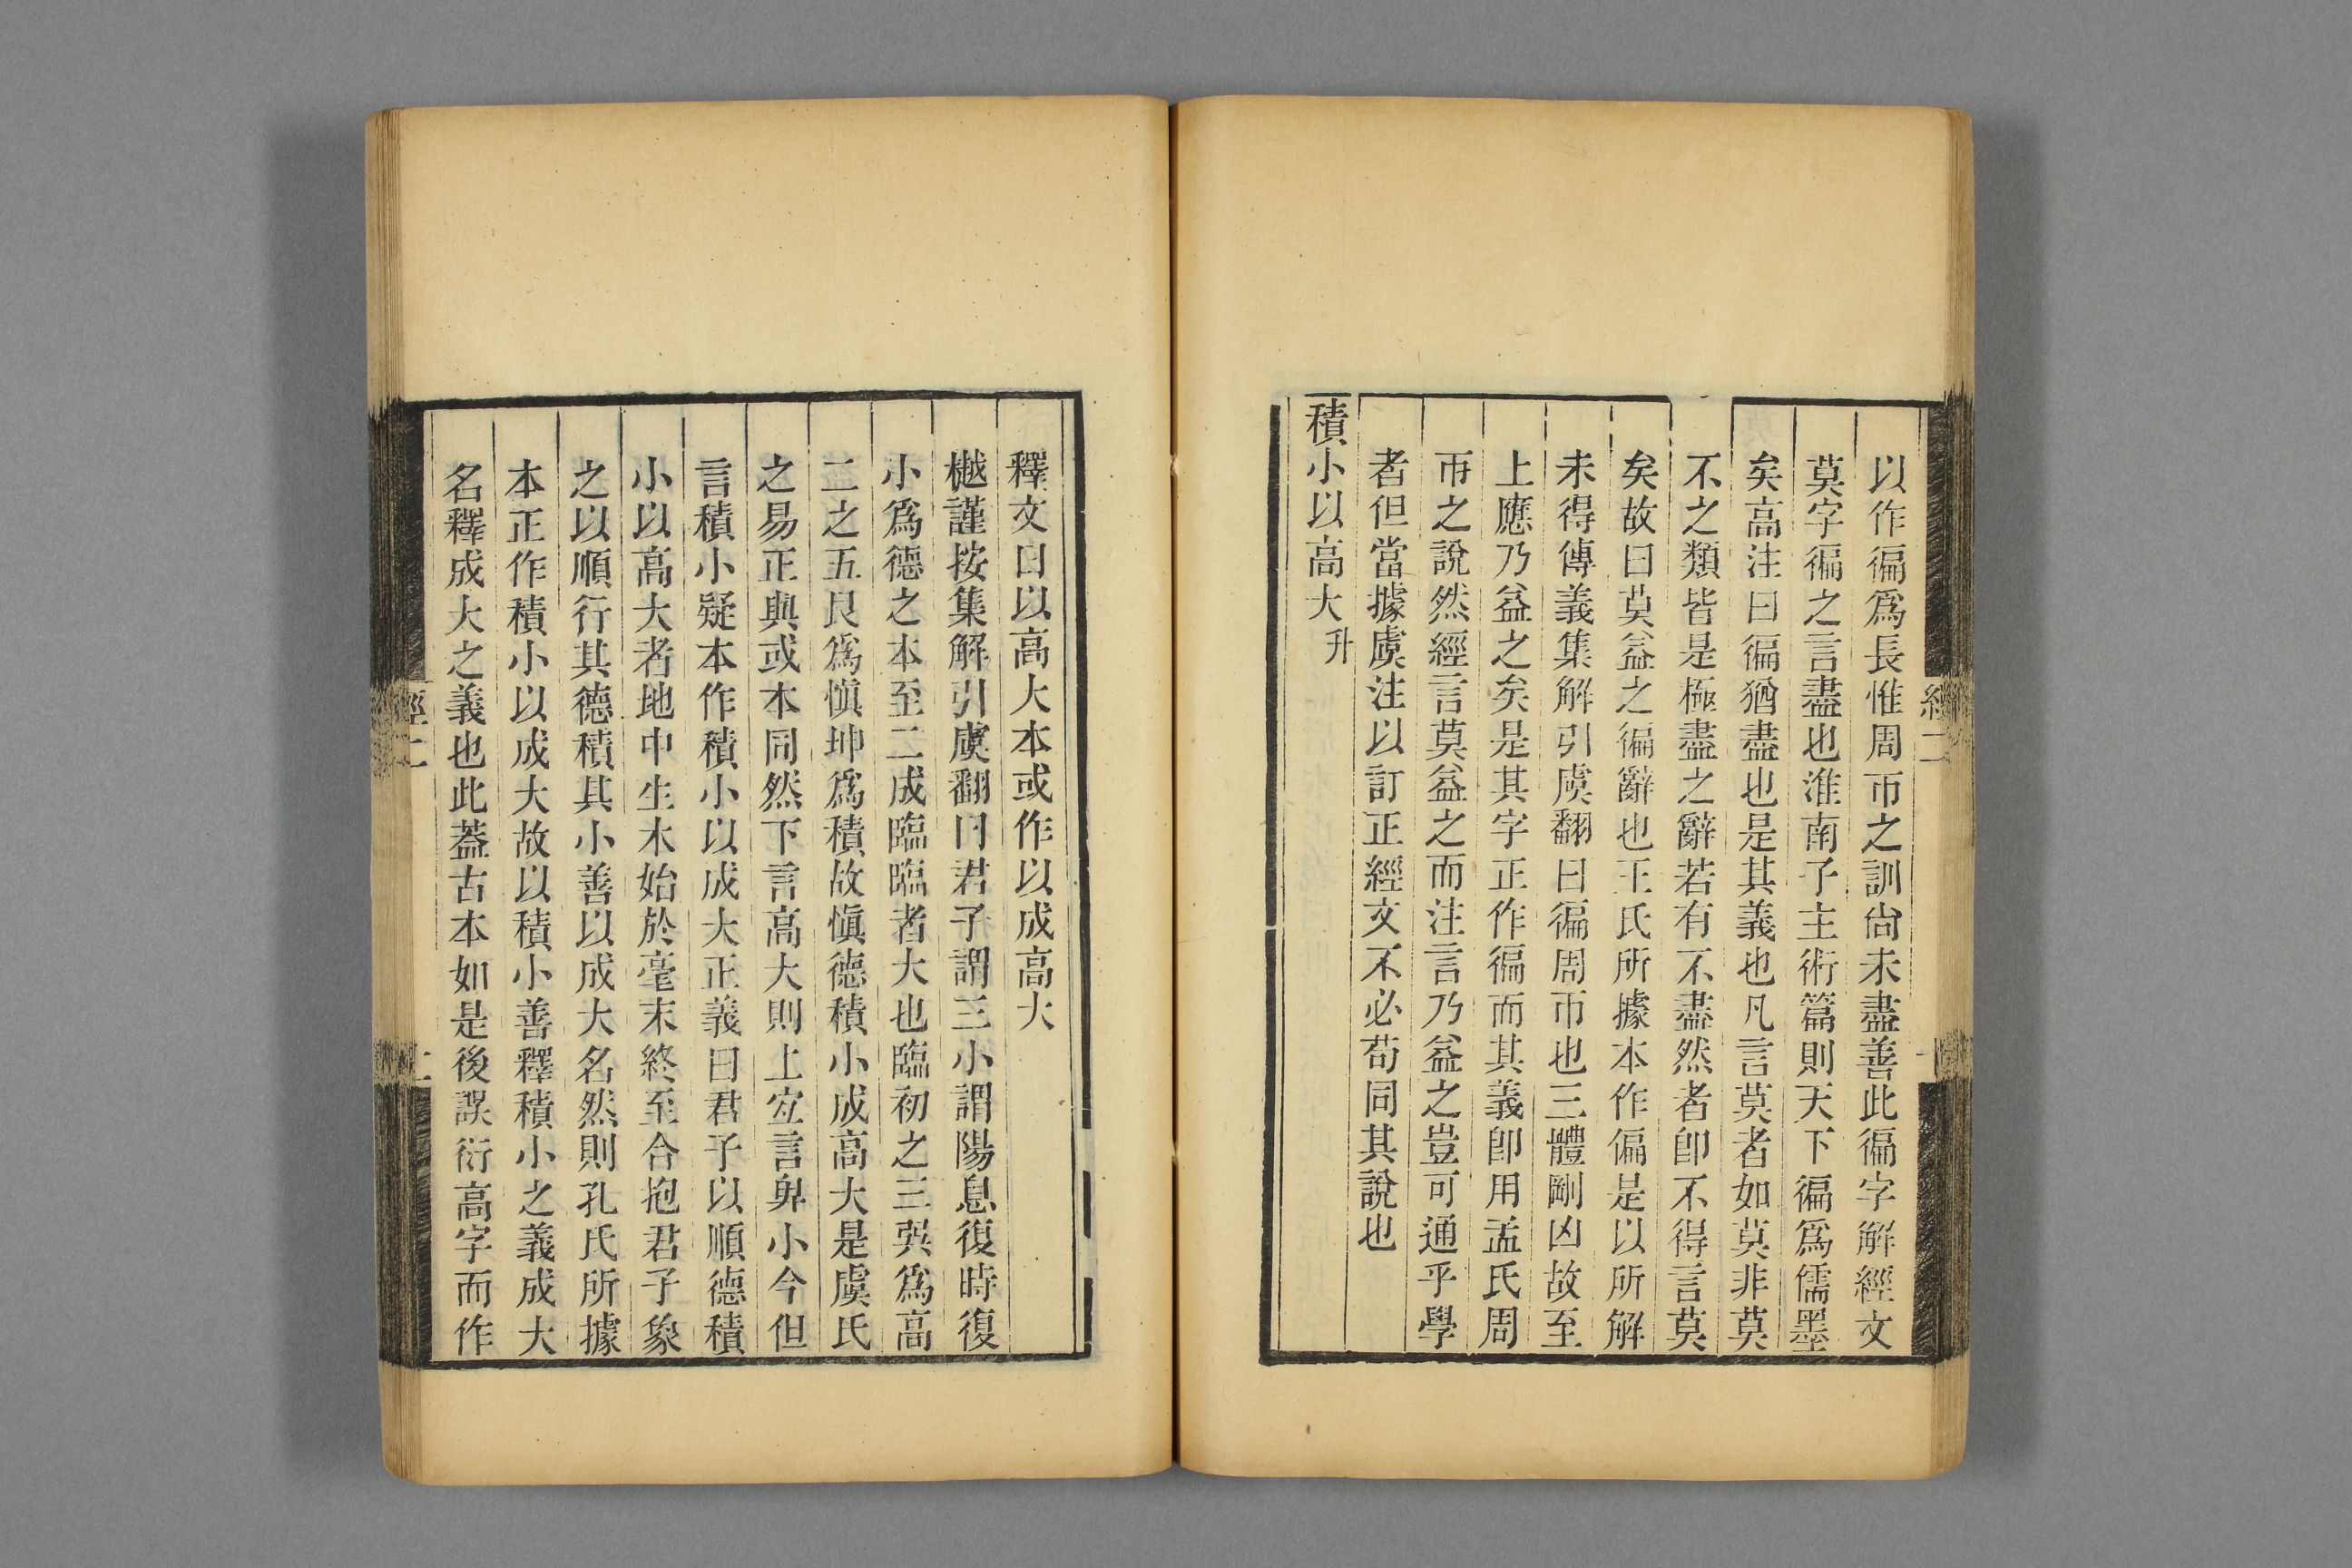 以作徧爲長惟周帀之訓尙未盡善此徧字解經文
莫字徧之言盡也淮南子主術篇則天下徧爲儒墨
矣高注曰徧猶盡也是其義也凡言莫者如莫非莫
不之類皆是極盡之辭若有不盡然者卽不得言莫
矣故曰莫益之徧辭也王氏所據本作偏是以所解
未得傳義集解引虞翻曰徧周帀也三體剛凶故至
上應乃益之矣是其字正作徧而其義卽用孟氏周
帀之說然經言莫益之而注言乃益之豈可通乎學
者但當據虞注以訂正經文不必苟同其說也
積小以高大升
釋文曰以高大本或作以成高大
樾謹按集解引虞翻曰君子謂三小謂陽息復時復
小爲德之本至二成臨臨者大也臨初之三巽爲高
二之五艮爲愼坤爲積故愼德積小成高大是虞氏
之易正與或本同然下言高大則上宜言卑小今但
言積小疑本作積小以成大正義曰君子以順德積
小以高大者地中生木始於毫末終至合抱君子象
之以順行其德積其小善以成大名然則孔氏所據
本正作積小以成大故以積小善釋積小之義成大
名釋成大之義也此蓋古本如是後誤衍高字而作
經二